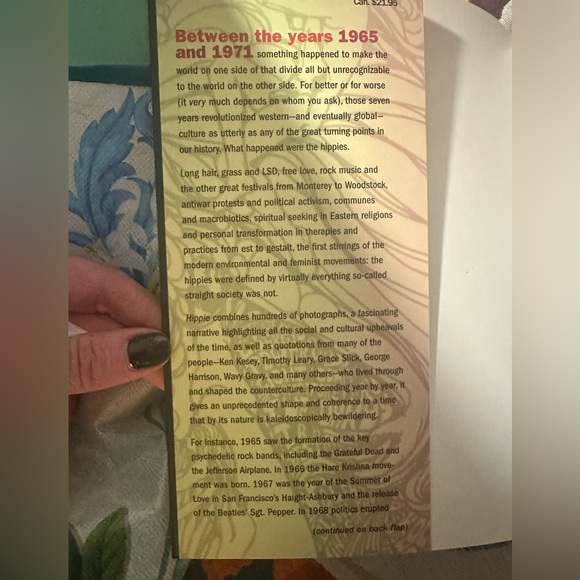 Can. $21.95
Between the years 1965
and 1971 something happened to make the
world on one side of that divide all but unrecognizable
to the world on the other side. For better or for worse
(it very much depends on whom you ask), those seven
years revolutionized western—and eventually global—
culture as utterly as any of the great turning points in
our history. What happened were the hippies.
Long hair, grass and LSD, free love, rock music and
the other great festivals from Monterey to Woodstock,
antiwar protests and political activism, communes
and macrobiotics, spiritual seeking in Eastern religions
and personal transformation in therapies and
practices from est to gestalt, the first stirrings of the
modern environmental and feminist movements: the
hippies were defined by virtually everything so-called
straight society was not.
Hippie combines hundreds of photographs, a fascinating
narrative highlighting all the social and cultural upheavals
of the time, as well as quotations from many of the
people—Ken Kesey, Timothy Leary, Grace Slick, George
Harrison, Wavy Gravy, and many others—who lived through
and shaped the counterculture. Proceeding year by year, it
gives an unprecedented shape and coherence to a time
that by its nature is kaleidoscopically bewildering.
For instance, 1965 saw the formation of the key
psychedelic rock bands, including the Grateful Dead and
the Jefferson Airplane. In 1966 the Hare Krishna move-
ment was born. 1967 was the year of the Summer of
Love in San Francisco's Haight-Ashbury and the release
of the Beatles' Sgt. Pepper. In 1968 politics erupted
(continued on back flap)